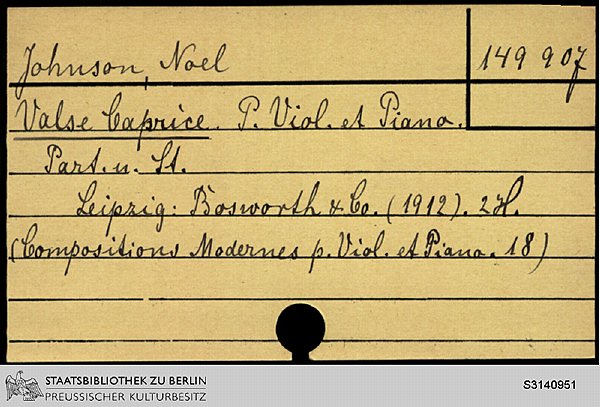 Johnson, Noel
149 907
Valse Caprice. P. Viol. et Piano.
Part. u. St.
Leipzig: Bosworth & Co. (1912). 2 H.
(Compositions Modernes p. Viol. et Piano. 18)
STAATSBIBLIOTHEK ZU BERLIN
PREUSSISCHER KULTURBESITZ
S3140951